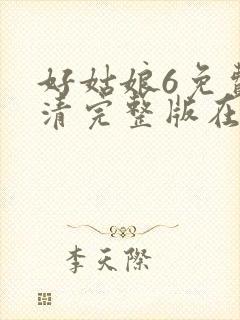 好姑娘6免费
清完整版在
李天际